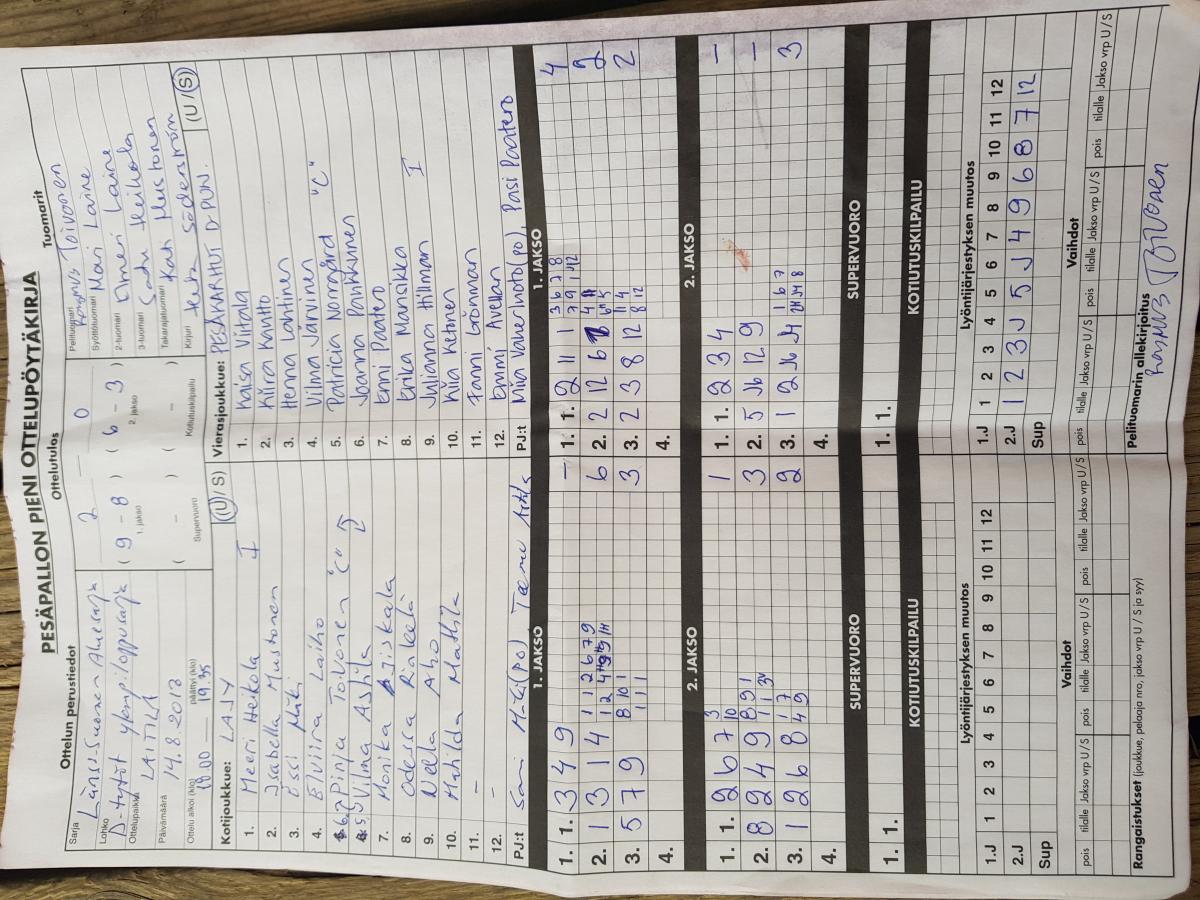 PESÄPALLON PIENI OTTELUPÖYTÄKIRJA
Ottelun perustiedot
Ottelutulos
Tuomarit
Sarja
Länsi-Suomen Aluesarja
Lohko
D-tytöt ylempi loppusarja
Ottelupaikka
LAITILA
Päivämäärä
14.8.2013
Ottelu alkoi (klo)
18.00
päättyi (klo)
19.35
2 — 0
( 9 - 8 ) ( 6 - 3 )
1. jakso
2. jakso
( - ) ( - )
Supervuoro
Kotiutuskilpailu
Pelituomari
Rasmus Toivonen
Syöttötuomari
Mari Laine
2-tuomari
Elmeri Laine
3-tuomari
Satu Heikola
Takarajatuomari
Kati Mustonen
Kirjuri
Söderström
Kotijoukkue: LAJY (U/S)
1. Meeri Heikola I
2. Isabella Mustonen
3. Essi Mäki
4. Elviira Laiho
6. Pinja Toivonen "C"
5. Vilma Ashila
7. Monika
8. Odessa Rinkelä
9. Neella Aho
10. Mahilda Mattila
11. -
12. -
PJ:t Sami Mäki (PO) Teemu
Vierasjoukkue: PESÄKARHUT D PUN. (U/S)
1. Kaisa Viitala
2. Kiira Kantto
3. Henna Lahtinen
4. Vilma Järvinen "C"
5. Patricia Norrgård
6. Joanna Pankkunen
7. Enni Paatero
8. Erika Mansikka
9. Julianna Hillman I
10. Kiia Ketonen
11. Fanni Grönman
12. Emmi Avellan
PJ:t Miia Vaherinoto (PO), Pasi Paatero
1. JAKSO
1. 1. 3 4 9 -
2. 1 3 1 4 6
3. 5 7 9 3
4.
2. JAKSO
1. 1. 2 6 7 1
2. 8 2 4 9 3
3. 1 2 6 8 2
4.
SUPERVUORO
1. 1.
KOTIUTUSKILPAILU
1. JAKSO
1. 1. 2 11 1 4
2. 2 12 6 2
3. 2 3 8 12 2
4.
2. JAKSO
1. 1. 2 3 4 -
2. 5 J6 12 9 -
3. 1 2 J6 J4 3
4.
SUPERVUORO
1. 1.
KOTIUTUSKILPAILU
Lyöntijärjestyksen muutos
1 2 3 4 5 6 7 8 9 10 11 12
1.J
2.J
Sup
Lyöntijärjestyksen muutos
1 2 3 4 5 6 7 8 9 10 11 12
1.J
2.J 1 2 3 J 5 J 4 9 6 8 7 12
Sup
Vaihdot
pois tilalle Jakso vrp U/S pois tilalle Jakso vrp U/S pois tilalle Jakso vrp U/S
Vaihdot
pois tilalle Jakso vrp U/S pois tilalle Jakso vrp U/S pois tilalle Jakso vrp U/S
Rangaistukset (joukkue, pelaaja nro, jakso vrp U / S ja syy)
Pelituomarin allekirjoitus
Rasmus Toivonen